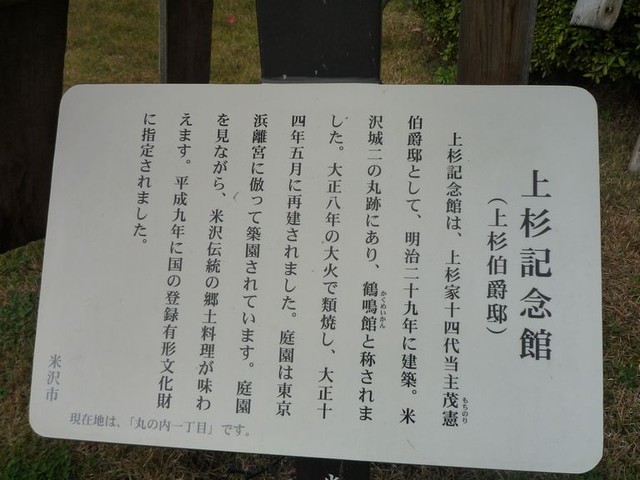 上杉記念館
(上杉伯爵邸)
上杉記念館は、上杉家十四代当主茂憲
もちのり
伯爵邸として、明治二十九年に建築。米
沢城二の丸跡にあり、鶴鳴館と称されま
かくめいかん
した。大正八年の大火で類焼し、大正十
四年五月に再建されました。庭園は東京
浜離宮に倣って築園されています。庭園
を見ながら、米沢伝統の郷土料理が味わ
えます。平成九年に国の登録有形文化財
に指定されました。
米沢市
現在地は、「丸の内一丁目」です。